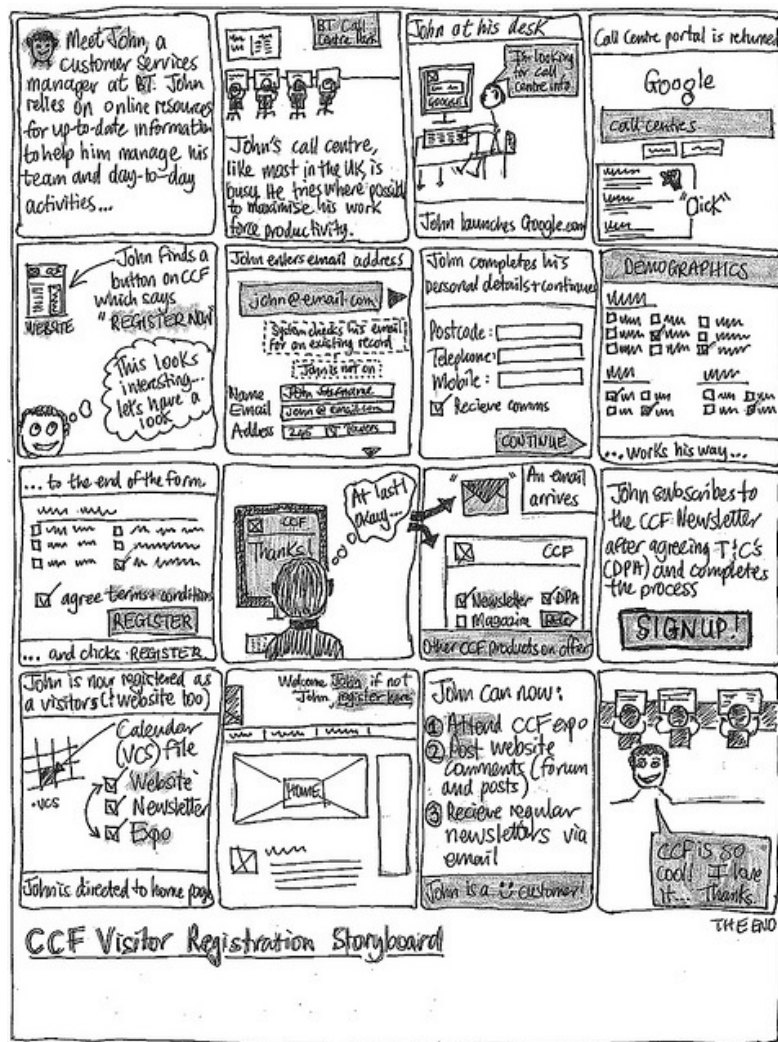 Meet John, a
customer services
manager at BT. John
relies on online resources
for up-to-date information
to help him manage his
team and day-to-day
activities...
BT Call
Centre
John's call centre,
like most in the UK, is
busy. He tries where possible
to maximise his work
force productivity.
John at his desk
I'm looking
for call
centre info
GOOGLE
John launches Google.com
Call Centre portal is returned
Google
call centres
"Click"
John finds a
button on CCF
which says
"REGISTER NOW"
WEBSITE
This looks
interesting...
let's have a
look
John enters email address
john@email.com
System checks his email
for an existing record
John is not on
Name John Surname
Email john@email.com
Address 205 Towers
John completes his
personal details + continues
Postcode:
Telephone:
Mobile:
Recieve comms
CONTINUE
DEMOGRAPHICS
... works his way...
... to the end of the form.
agree terms + conditions
REGISTER
... and clicks REGISTER
CCF
Thanks!
At last!
okay...
An email
arrives
CCF
Newsletter DPA
Magazine
Other CCF products on offer
John subscribes to
the CCF Newsletter
after agreeing T&C's
(DPA) and completes
the process
SIGNUP!
John is now registered as
a visitors (+ website too)
Calendar
(VCS) file
.VCS
Website
Newsletter
Expo
John is directed to home page
Welcome John if not
John, register here
HOME
John can now:
1 Attend CCF expo
2 Post website
comments (forum
and posts)
3 Recieve regular
newsletters via
email
John is a customer!
CCF is so
cool! I love
it... Thanks.
THE END
CCF Visitor Registration Storyboard